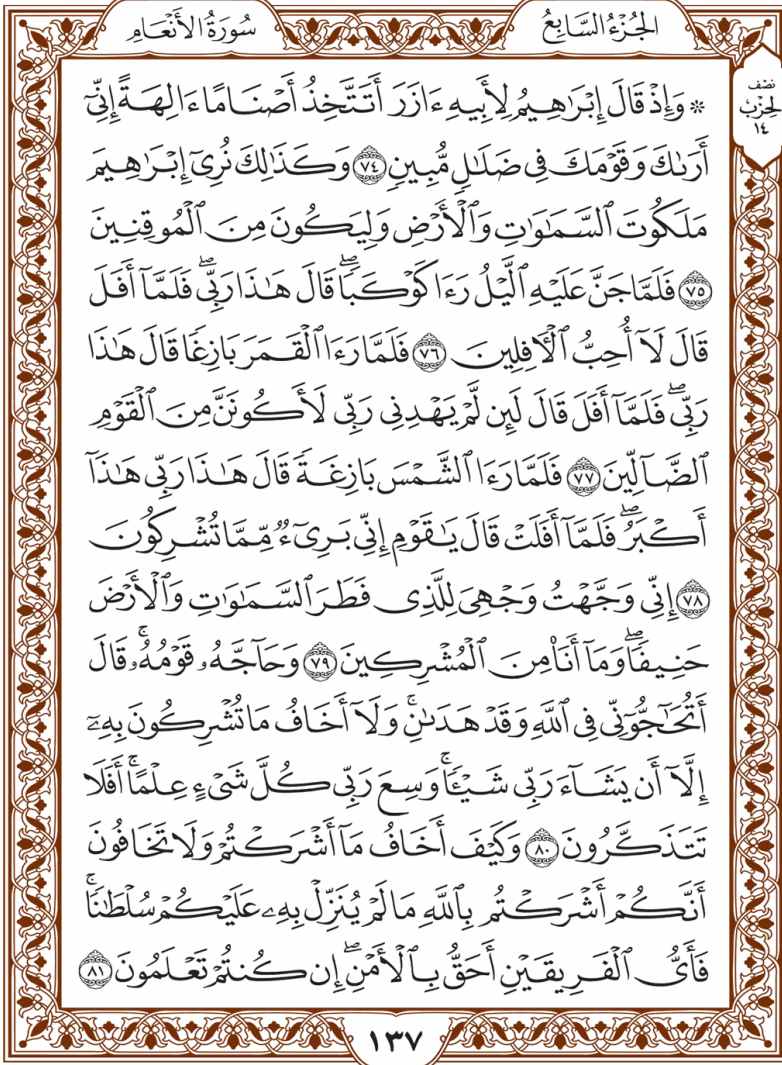 سُورَةُ الأَنْعَام
الجُزْءُ السَّابِعُ
نصف
لحزب
١٤
۞ وَإِذْ قَالَ إِبْرَٰهِيمُ لِأَبِيهِ ءَازَرَ أَتَتَّخِذُ أَصْنَامًا ءَالِهَةً إِنِّيٓ
أَرَىٰكَ وَقَوْمَكَ فِى ضَلَٰلٍ مُّبِينٍ ٧٤ وَكَذَٰلِكَ نُرِىٓ إِبْرَٰهِيمَ
مَلَكُوتَ ٱلسَّمَٰوَٰتِ وَٱلْأَرْضِ وَلِيَكُونَ مِنَ ٱلْمُوقِنِينَ
٧٥ فَلَمَّا جَنَّ عَلَيْهِ ٱلَّيْلُ رَءَا كَوْكَبًاۖ قَالَ هَٰذَا رَبِّىۖ فَلَمَّآ أَفَلَ
قَالَ لَآ أُحِبُّ ٱلْءَافِلِينَ ٧٦ فَلَمَّا رَءَا ٱلْقَمَرَ بَازِغًا قَالَ هَٰذَا
رَبِّىۖ فَلَمَّآ أَفَلَ قَالَ لَئِن لَّمْ يَهْدِنِى رَبِّى لَأَكُونَنَّ مِنَ ٱلْقَوْمِ
ٱلضَّآلِّينَ ٧٧ فَلَمَّا رَءَا ٱلشَّمْسَ بَازِغَةً قَالَ هَٰذَا رَبِّى هَٰذَآ
أَكْبَرُۖ فَلَمَّآ أَفَلَتْ قَالَ يَٰقَوْمِ إِنِّى بَرِىٓءٌ مِّمَّا تُشْرِكُونَ
٧٨ إِنِّى وَجَّهْتُ وَجْهِىَ لِلَّذِى فَطَرَ ٱلسَّمَٰوَٰتِ وَٱلْأَرْضَ
حَنِيفًاۖ وَمَآ أَنَا۠ مِنَ ٱلْمُشْرِكِينَ ٧٩ وَحَآجَّهُۥ قَوْمُهُۥۚ قَالَ
أَتُحَٰٓجُّوٓنِّى فِى ٱللَّهِ وَقَدْ هَدَىٰنِۚ وَلَآ أَخَافُ مَا تُشْرِكُونَ بِهِۦٓ
إِلَّآ أَن يَشَآءَ رَبِّى شَيْـًٔاۚ وَسِعَ رَبِّى كُلَّ شَىْءٍ عِلْمًاۚ أَفَلَا
تَتَذَكَّرُونَ ٨٠ وَكَيْفَ أَخَافُ مَآ أَشْرَكْتُمْ وَلَا تَخَافُونَ
أَنَّكُمْ أَشْرَكْتُم بِٱللَّهِ مَا لَمْ يُنَزِّلْ بِهِۦ عَلَيْكُمْ سُلْطَٰنًاۚ
فَأَىُّ ٱلْفَرِيقَيْنِ أَحَقُّ بِٱلْأَمْنِۖ إِن كُنتُمْ تَعْلَمُونَ ٨١
١٣٧